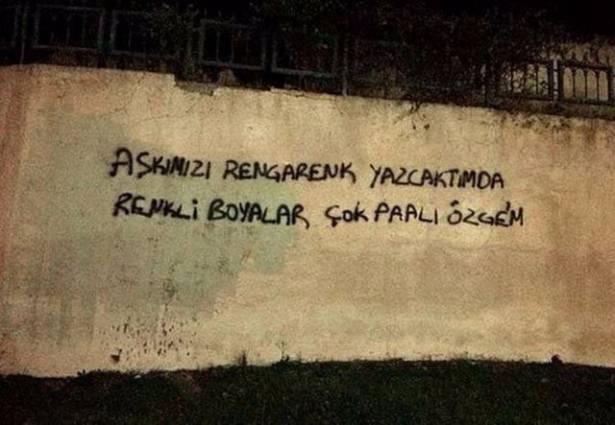 AŞKIMIZI RENGARENK YAZCAKTIMDA
RENKLİ BOYALAR ÇOK PAALI ÖZGE'M